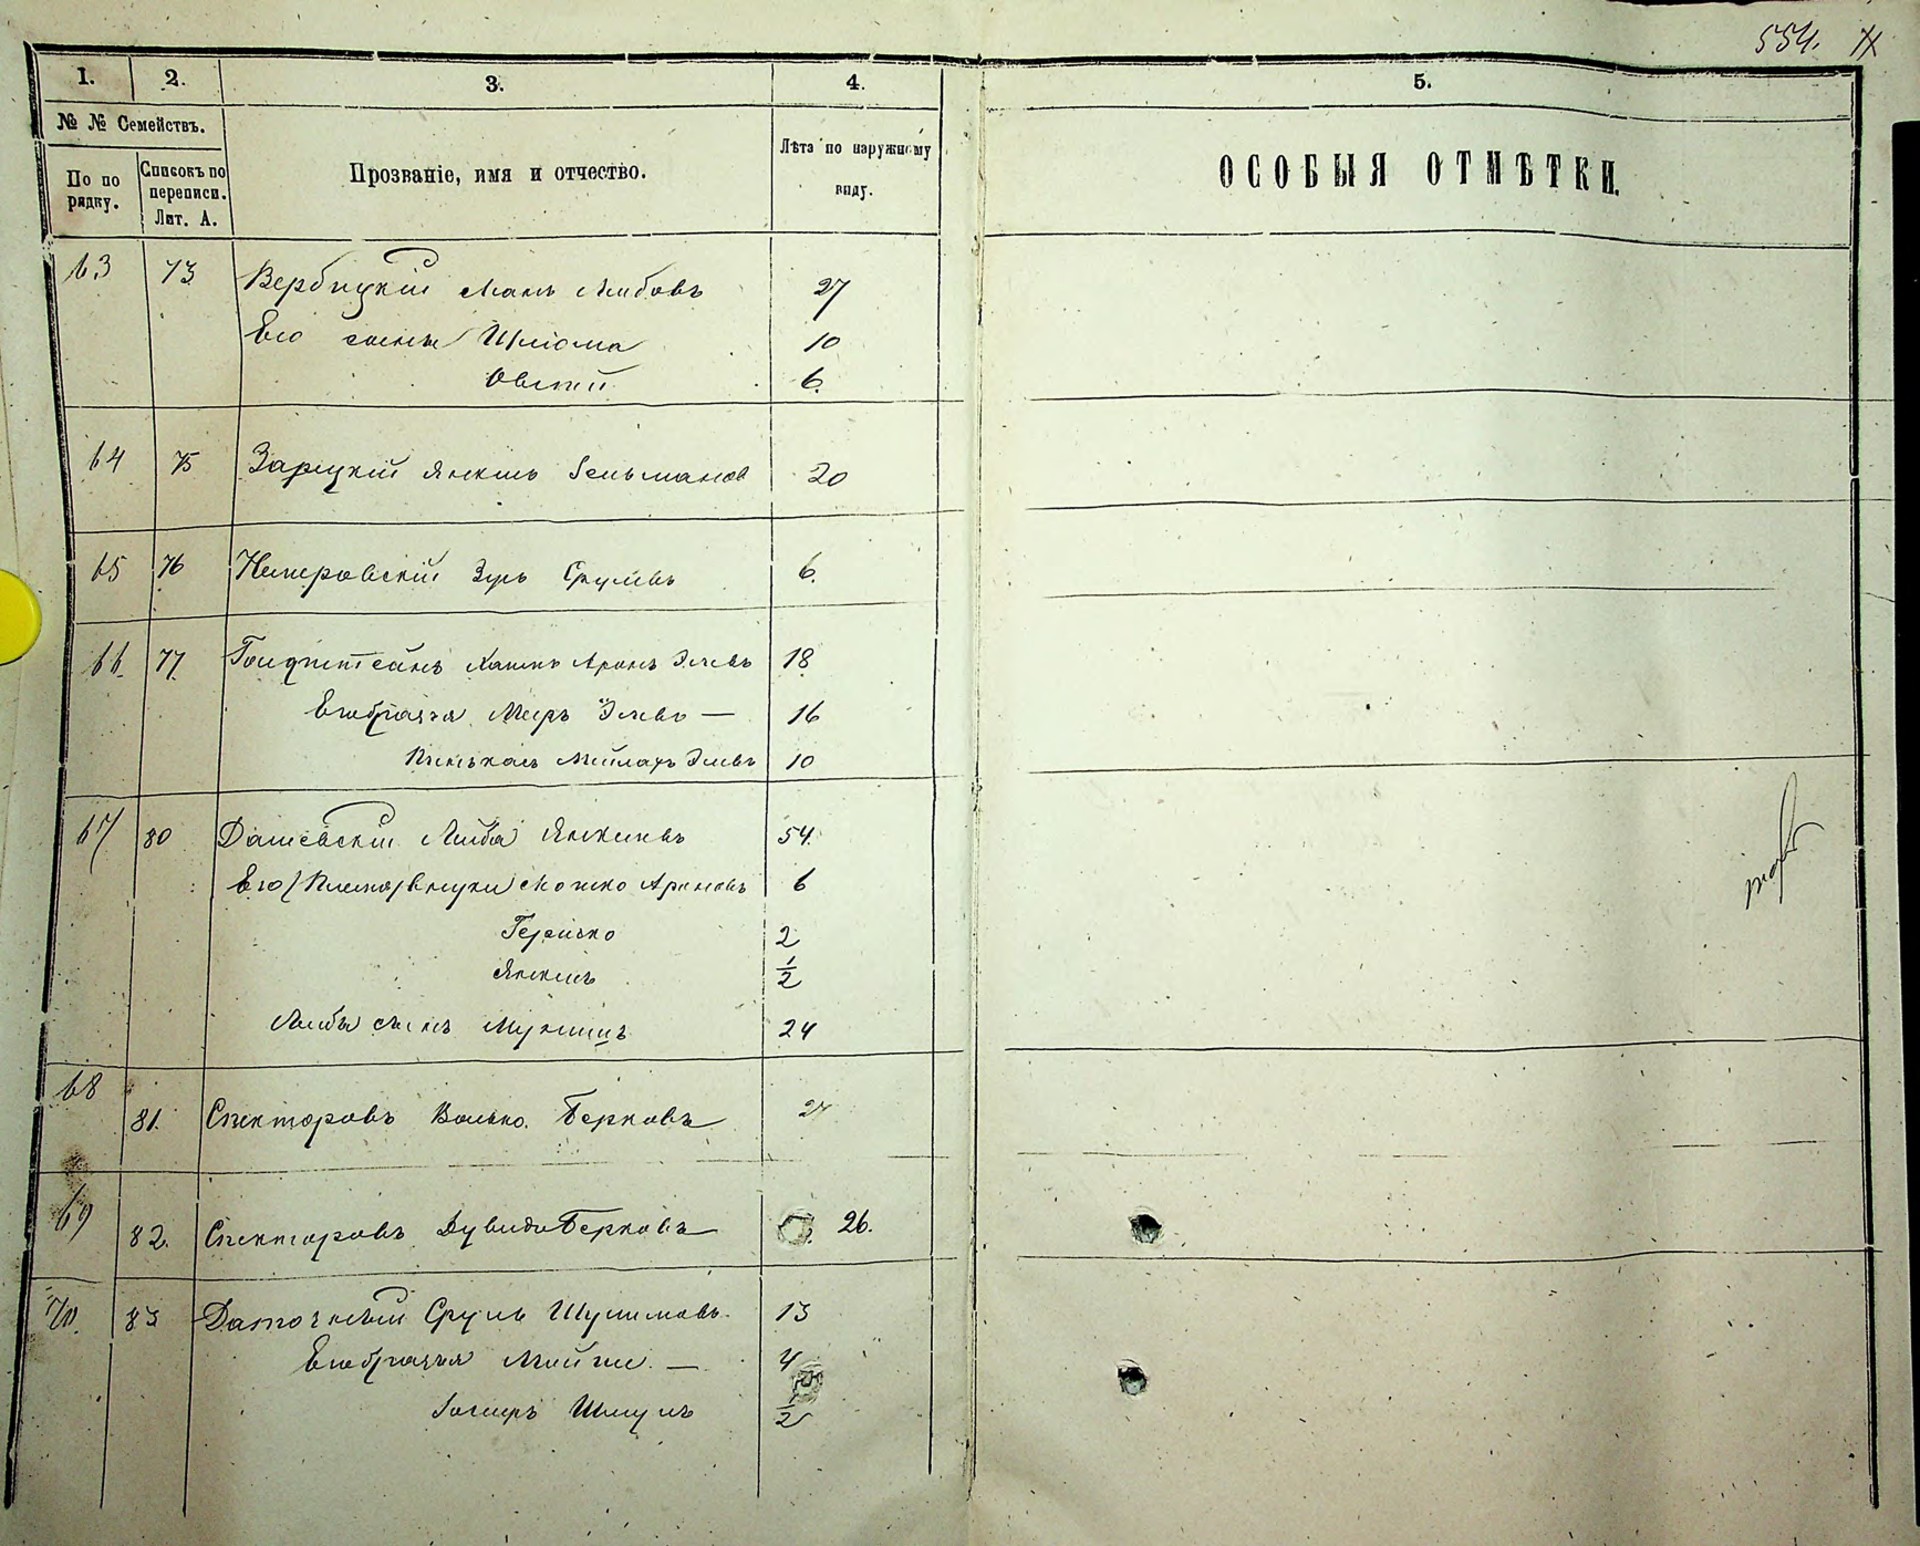 554.
1. 2. 3. 4. 5.
№ № Семействъ.
По по рядку.
Списокъ по переписи. Лит. А.
Прозваніе, имя и отчество.
Лѣта по наружному виду.
ОСОБЫЯ ОТМѢТКИ.
63 73 Вербицкій Лейбовъ 27
Его сынъ Шліома 10
Овсій 6.
64 75 Зарицкій Янкель Гельманов 20
65 76 Немеровскій Срулевъ 6.
66. 77. Гольдштейнъ Аронъ Элевъ 18
Его братья Мееръ Элевъ — 16
Пинькасъ Мейлахъ Элевъ 10
67 80 Дашевскій Лейба Янкелевъ 54.
Его внуки Мошко Ароновъ 6
Гершко 2
Янкель 1/2
Лейбы сынъ 24
68 81. Спекторовъ Волько Берковъ 24
69 82. Спекторовъ Дувидъ Берковъ 26.
70. 83 Сруль Шулимовъ 13
Его братья — 4
Шмуль 1/2